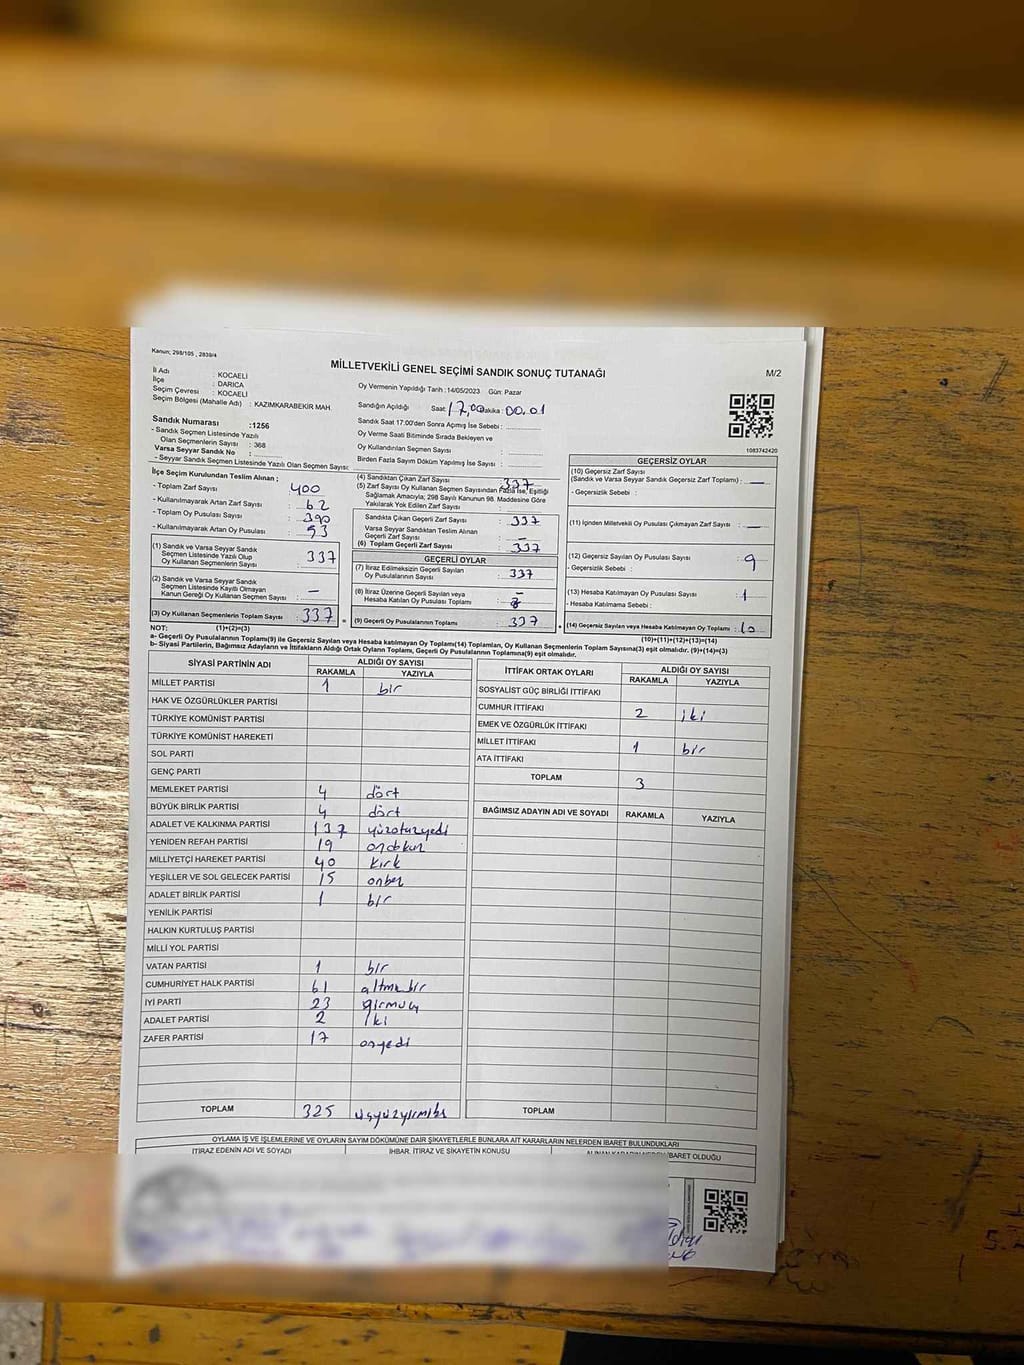 Kanun; 298/105 , 2839/4
MİLLETVEKİLİ GENEL SEÇİMİ SANDIK SONUÇ TUTANAĞI
M/2
İl Adı : KOCAELİ
İlçe : DARICA
Seçim Çevresi : KOCAELİ
Seçim Bölgesi (Mahalle Adı) : KAZIMKARABEKİR MAH.
Oy Vermenin Yapıldığı Tarih : 14/05/2023 Gün: Pazar
Sandığın Açıldığı Saat: 17.00 Dakika : 00.01
Sandık Saat 17:00'den Sonra Açmış İse Sebebi :
Oy Verme Saati Bitiminde Sırada Bekleyen ve
Oy Kullandırılan Seçmen Sayısı :
Birden Fazla Sayım Döküm Yapılmış İse Sayısı :
1083742420
Sandık Numarası :1256
- Sandık Seçmen Listesinde Yazılı
Olan Seçmenlerin Sayısı : 368
Varsa Seyyar Sandık No :
- Seyyar Sandık Seçmen Listesinde Yazılı Olan Seçmen Sayısı:
İlçe Seçim Kurulundan Teslim Alınan ;
- Toplam Zarf Sayısı : 400
- Kullanılmayarak Artan Zarf Sayısı : 62
- Toplam Oy Pusulası Sayısı : 390
- Kullanılmayarak Artan Oy Pusulası : 53
(1) Sandık ve Varsa Seyyar Sandık
Seçmen Listesinde Yazılı Olup
Oy Kullanan Seçmenlerin Sayısı : 337
(2) Sandık ve Varsa Seyyar Sandık
Seçmen Listesinde Kayıtlı Olmayan
Kanun Gereği Oy Kullanan Seçmen Sayısı : —
(3) Oy Kullanan Seçmenlerin Toplam Sayısı : 337
(4) Sandıktan Çıkan Zarf Sayısı : 337
(5) Zarf Sayısı Oy Kullanan Seçmen Sayısından Fazla İse, Eşitliği
Sağlamak Amacıyla; 298 Sayılı Kanunun 98. Maddesine Göre
Yakılarak Yok Edilen Zarf Sayısı :
Sandıkta Çıkan Geçerli Zarf Sayısı : 337
Varsa Seyyar Sandıktan Teslim Alınan
Geçerli Zarf Sayısı : —
(6) Toplam Geçerli Zarf Sayısı : 337
GEÇERLİ OYLAR
(7) İtiraz Edilmeksizin Geçerli Sayılan
Oy Pusulalarının Sayısı : 337
(8) İtiraz Üzerine Geçerli Sayılan veya
Hesaba Katılan Oy Pusulası Toplamı : —
(9) Geçerli Oy Pusulalarının Toplamı : 337
GEÇERSİZ OYLAR
(10) Geçersiz Zarf Sayısı
(Sandık ve Varsa Seyyar Sandık Geçersiz Zarf Toplamı) : —
- Geçersizlik Sebebi :
(11) İçinden Milletvekili Oy Pusulası Çıkmayan Zarf Sayısı : —
(12) Geçersiz Sayılan Oy Pusulası Sayısı : 9
- Geçersizlik Sebebi :
(13) Hesaba Katılmayan Oy Pusulası Sayısı : 1
- Hesaba Katılmama Sebebi :
(14) Geçersiz Sayılan veya Hesaba Katılmayan Oy Toplamı : 10
NOT: (1)+(2)=(3) (10)+(11)+(12)+(13)=(14)
a- Geçerli Oy Pusulalarının Toplamı(9) ile Geçersiz Sayılan veya Hesaba katılmayan Oy Toplam(14) Toplamları, Oy Kullanan Seçmenlerin Toplam Sayısına(3) eşit olmalıdır. (9)+(14)=(3)
b- Siyasi Partilerin, Bağımsız Adayların ve İttifakların Aldığı Ortak Oyların Toplamı, Geçerli Oy Pusulalarının Toplamına(9) eşit olmalıdır.
SİYASİ PARTİNİN ADI ALDIĞI OY SAYISI
RAKAMLA YAZIYLA
MİLLET PARTİSİ 1 bir
HAK VE ÖZGÜRLÜKLER PARTİSİ
TÜRKİYE KOMÜNİST PARTİSİ
TÜRKİYE KOMÜNİST HAREKETİ
SOL PARTİ
GENÇ PARTİ
MEMLEKET PARTİSİ 4 dört
BÜYÜK BİRLİK PARTİSİ 4 dört
ADALET VE KALKINMA PARTİSİ 137 yüzotuzyedi
YENİDEN REFAH PARTİSİ 19 ondokuz
MİLLİYETÇİ HAREKET PARTİSİ 40 kırk
YEŞİLLER VE SOL GELECEK PARTİSİ 15 onbeş
ADALET BİRLİK PARTİSİ 1 bir
YENİLİK PARTİSİ
HALKIN KURTULUŞ PARTİSİ
MİLLİ YOL PARTİSİ
VATAN PARTİSİ 1 bir
CUMHURİYET HALK PARTİSİ 61 altmışbir
İYİ PARTİ 23 yirmiüç
ADALET PARTİSİ 2 iki
ZAFER PARTİSİ 17 onyedi
TOPLAM 325 üçyüzyirmibeş
İTTİFAK ORTAK OYLARI ALDIĞI OY SAYISI
RAKAMLA YAZIYLA
SOSYALİST GÜÇ BİRLİĞİ İTTİFAKI
CUMHUR İTTİFAKI 2 iki
EMEK VE ÖZGÜRLÜK İTTİFAKI
MİLLET İTTİFAKI 1 bir
ATA İTTİFAKI
TOPLAM 3
BAĞIMSIZ ADAYIN ADI VE SOYADI RAKAMLA YAZIYLA
TOPLAM
OYLAMA İŞ VE İŞLEMLERİNE VE OYLARIN SAYIM DÖKÜMÜNE DAİR ŞİKAYETLERLE BUNLARA AİT KARARLARIN NELERDEN İBARET BULUNDUKLARI
İTİRAZ EDENİN ADI VE SOYADI İHBAR, İTİRAZ VE ŞİKAYETİN KONUSU ALINAN KARARIN NEDEN İBARET OLDUĞU